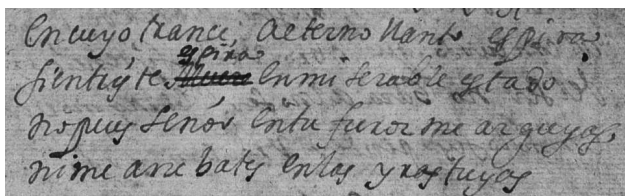 en cuyo trance, a eterno llanto espira
si en triste espira muere en miserable estado
no pues señor en tu furor me arguyas,
ni me arrebates en las yras tuyas